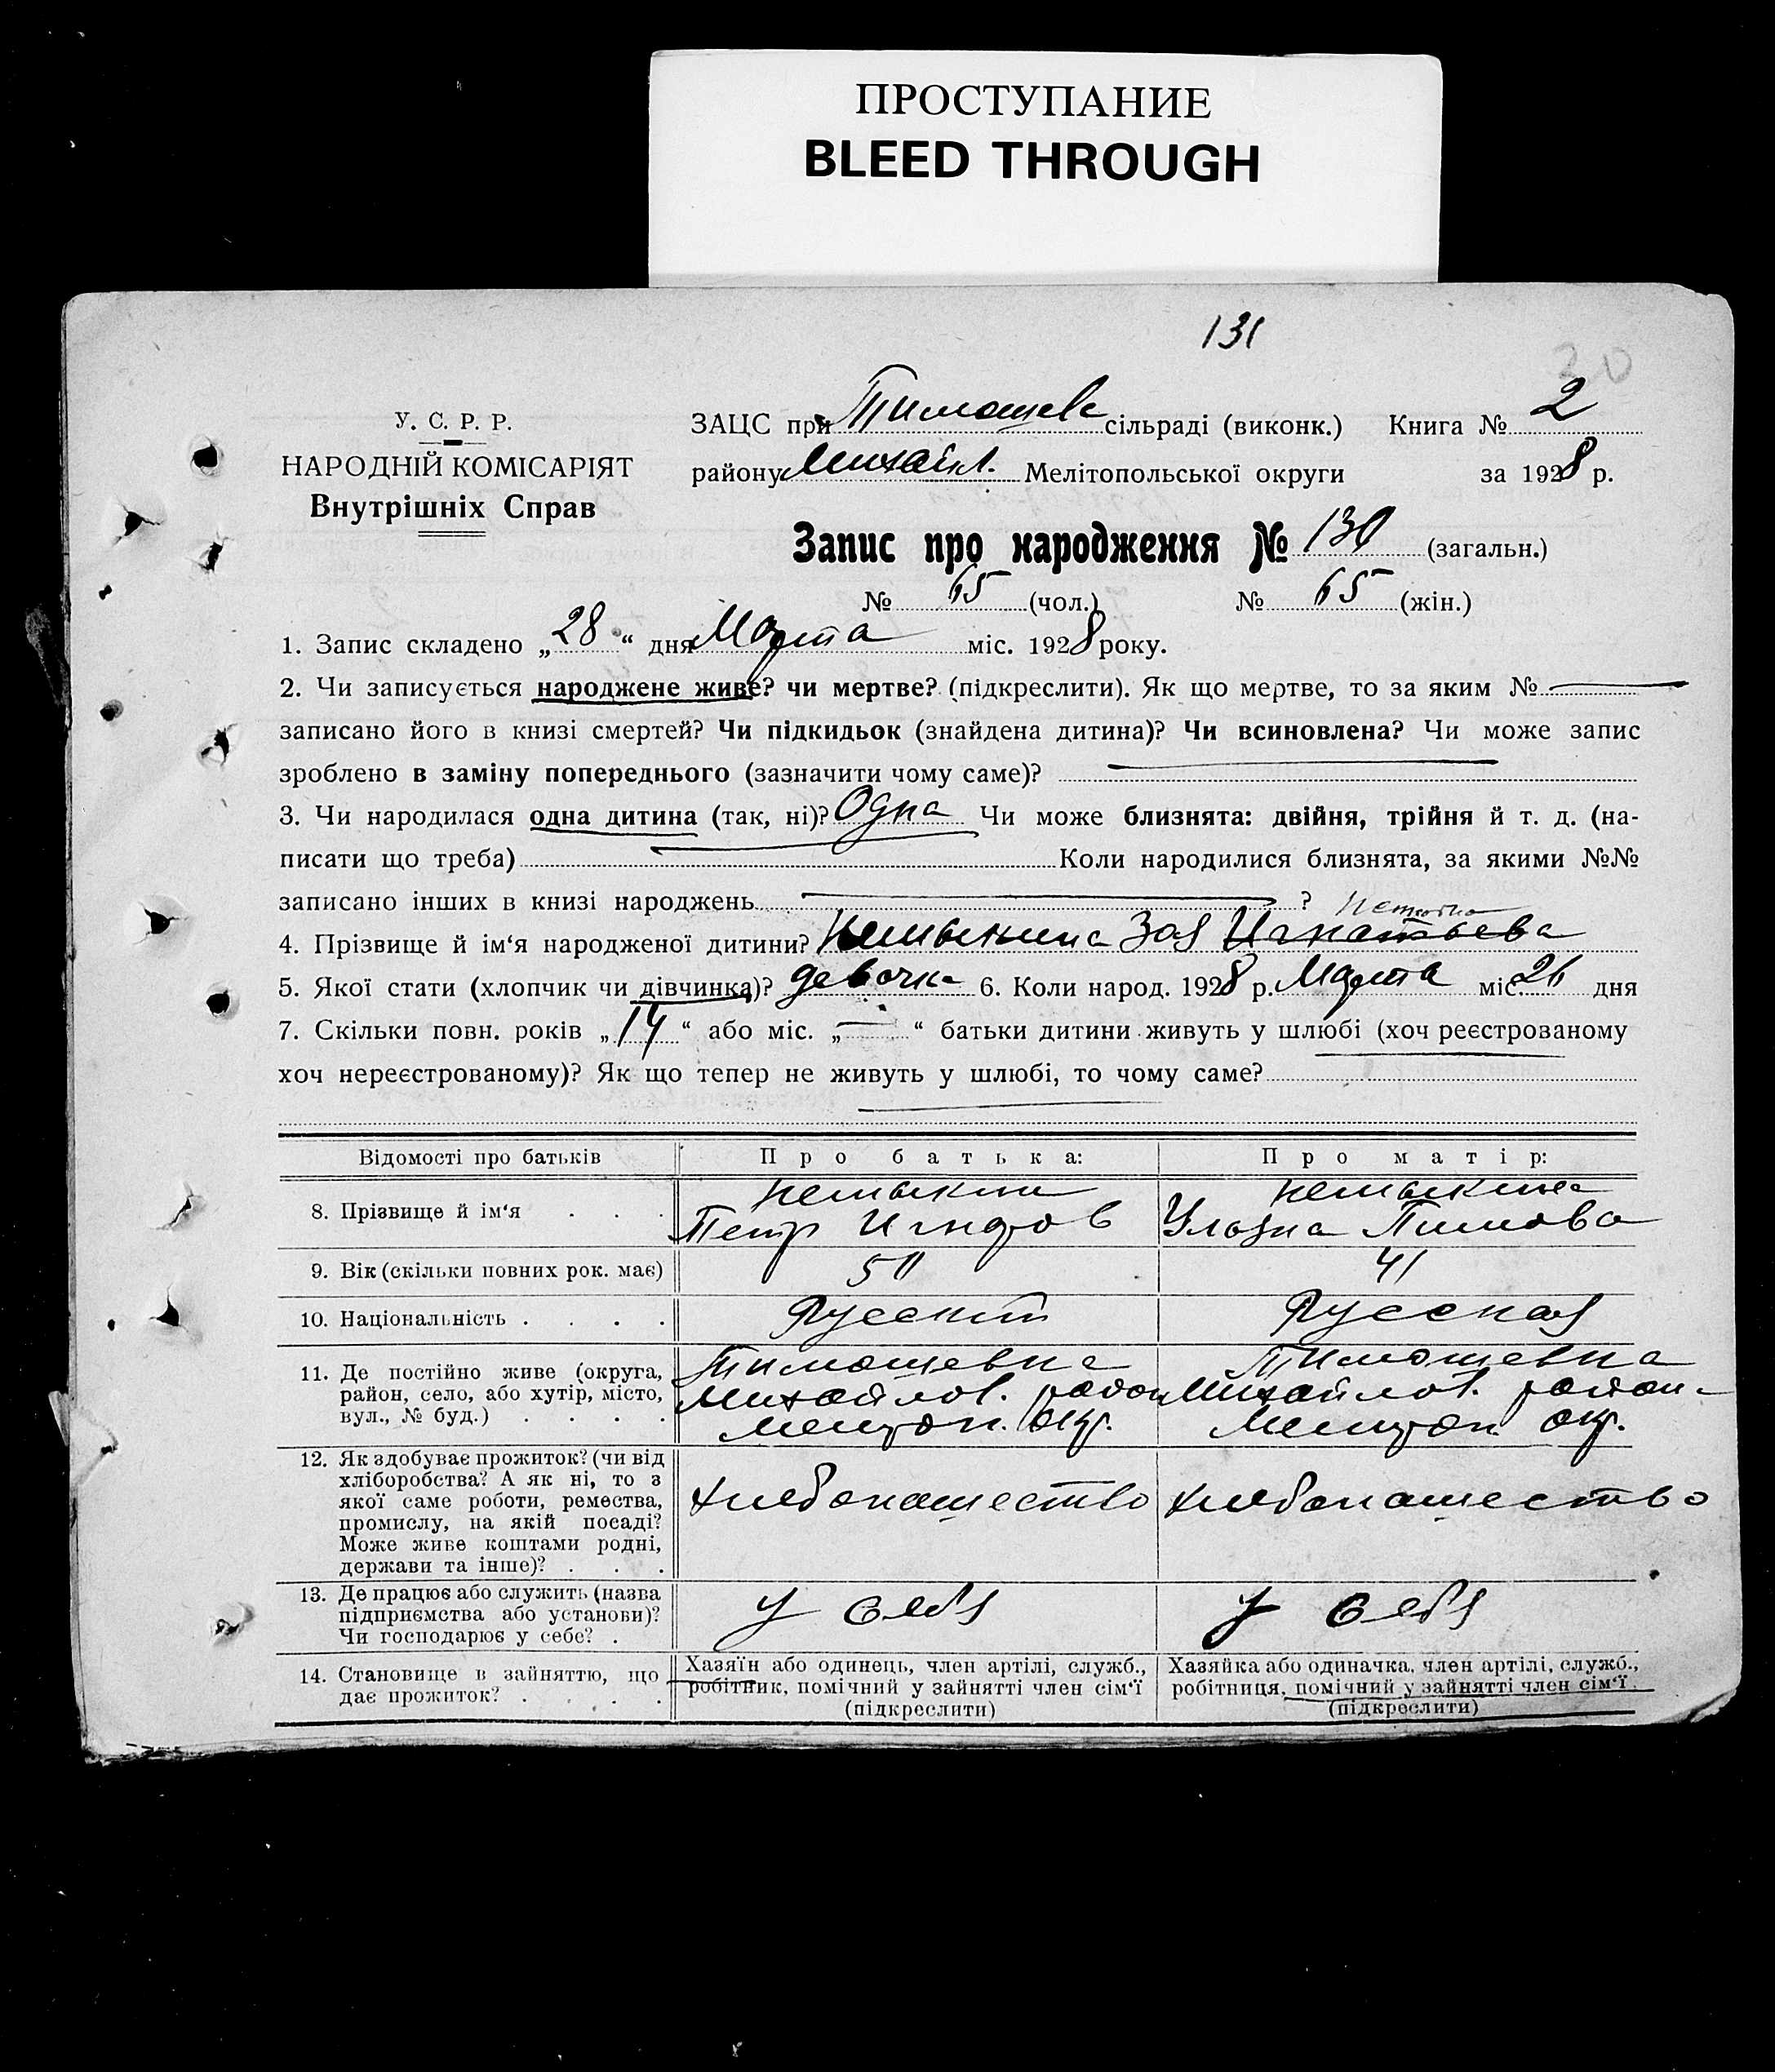 ПРОСТУПАНИЕ
BLEED THROUGH
131
30
У. С. Р. Р.
НАРОДНІЙ КОМІСАРІЯТ
Внутрішніх Справ
ЗАЦС при Тимошев сільраді (виконк.) Книга № 2
району Михайл. Мелітопольської округи за 1928 р.
Запис про народження № 130 (загальн.)
№ 65 (чол.) № 65 (жін.)
1. Запис складено „28“ дня Марта міс. 1928 року.
2. Чи записується народжене живе? чи мертве? (підкреслити). Як що мертве, то за яким №
записано його в книзі смертей? Чи підкидьок (знайдена дитина)? Чи всиновлена? Чи може запис
зроблено в заміну попереднього (зазначити чому саме)?
3. Чи народилася одна дитина (так, ні)? Одна Чи може близнята: двійня, трійня й т. д. (на-
писати що треба) Коли народилися близнята, за якими №№
записано інших в книзі народжень ?
4. Прізвище й ім‘я народженої дитини? Зоя Игнатьева
5. Якої стати (хлопчик чи дівчинка)? девочка 6. Коли народ. 1928 р. Марта міс. 26 дня
7. Скільки повн. років „14“ або міс. „—“ батьки дитини живуть у шлюбі (хоч реєстрованому
хоч нереєстрованому)? Як що тепер не живуть у шлюбі, то чому саме?
Відомості про батьків Про батька: Про матір:
8. Прізвище й ім‘я . . .
Петр
9. Вік (скільки повних рок. має) 50 41
10. Національність . . . . Русский Русская
11. Де постійно живе (округа, район, село, або хутір, місто, вул., № буд.) . . . .
Тимошевка Тимошевка
Михайлов. район Михайлов. район
Мелитоп. окр. Мелитоп. окр.
12. Як здобуває прожиток? (чи від
хліборобства? А як ні, то з
якої саме роботи, ремества,
промислу, на якій посаді?
Може живе коштами родні,
держави та інше)? . . .
хлебопашество хлебопашество
13. Де працює або служить (назва
підприємства або установи)?
Чи господарює у себе? .
у себя у себя
14. Становище в зайняттю, що
дає прожиток? . . . .
Хазяїн або одинець, член артілі, служб.,
робітник, помічний у зайнятті член сім‘ї
(підкреслити)
Хазяйка або одиначка, член артілі, служб.,
робітниця, помічний у зайнятті член сім‘ї
(підкреслити)